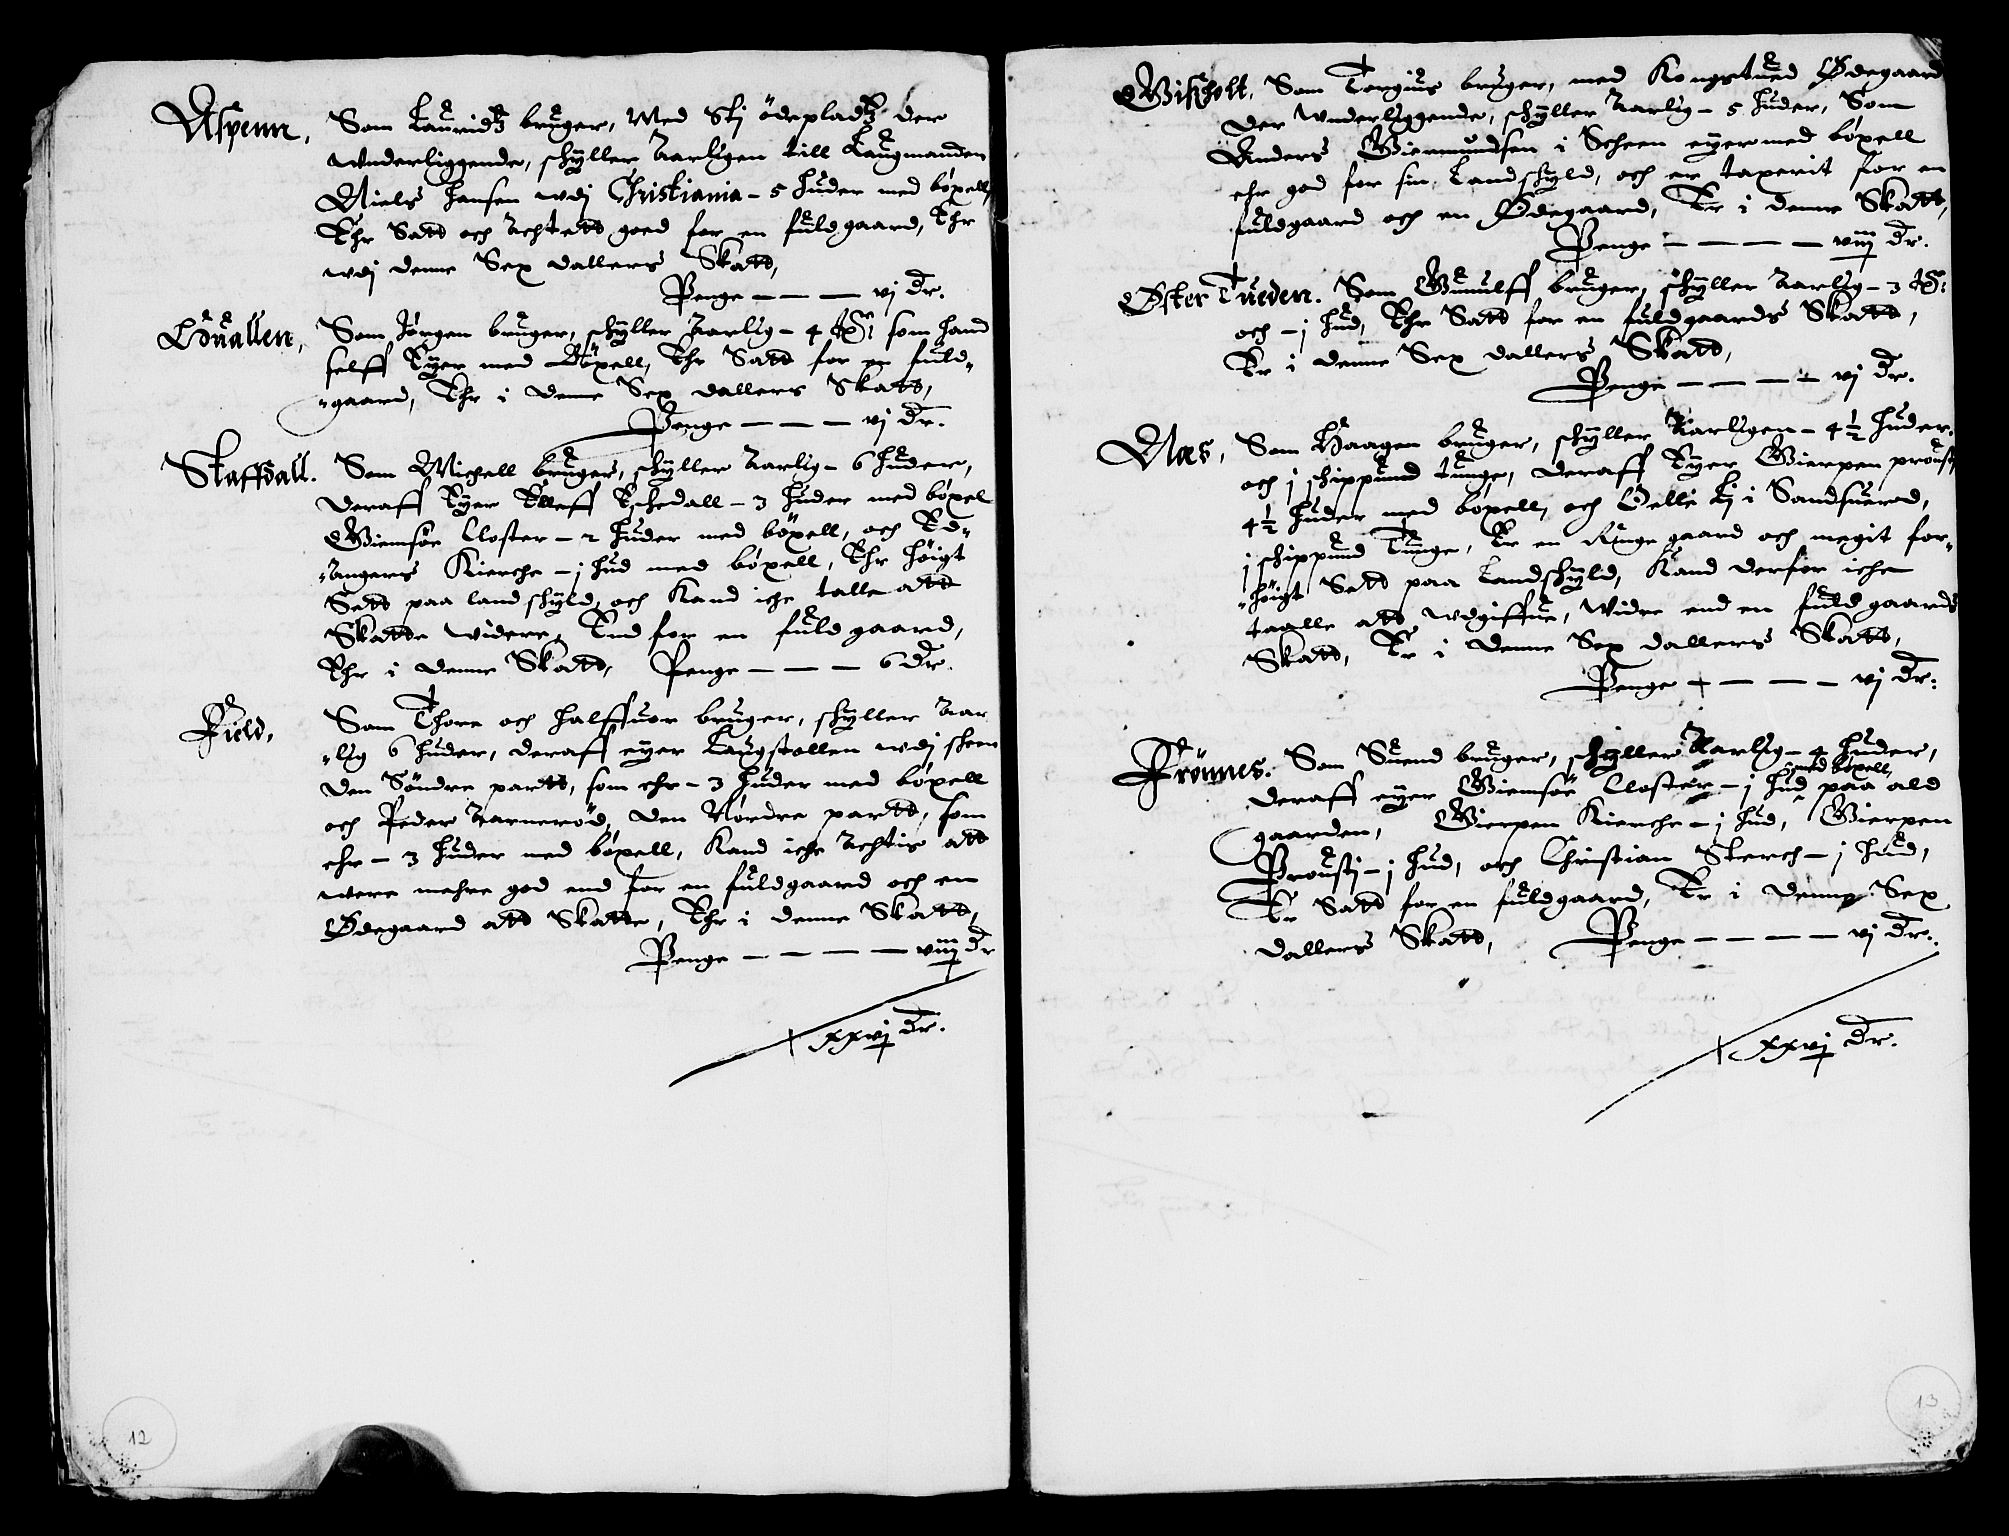 Aspenn, Som Lauridtz bruger, Med Stj ödepladtz der
wnderliggende, skyller Aarligen till Laugmanden
Niels Hansen wdj Christiania - 5 huder med böxell,
Ehr Satt och Achtett goed for en fuldgaard, Ehr
wdj denne Sex dallers Skatt,
Penge — — — vj dr.
Löuallen, Som Jörgen bruger, skyller Aarlig - 4 som hand
selff Eyer med Böxell, Ehr Satt for en fuld-
-gaard, Ehr i denne Sex dallers Skatt,
Penge — — — vj dr.
Staffdall. Som Michell bruger, skyller Aarlig - 6 huder,
deraff Eyer Elleff - 3 huder med böxel
Giemsöe Closter - 2 huder med böxell, och Ed-
-angers Kierche - j hud med böxell, Ehr höigt
Sett paa landskyld, och Kand iche talle att
Skatte widere, End for en fuld gaard,
Ehr i denne Skatt, Penge — — — 6 dr.
Field, Som Thore och Halffuor bruger, skyller Aar
-lig 6 huder, deraff eyer Laugstollen wdj Skeen
den Söndre partt, som ehr - 3 huder med böxell
och Peder Aarneröd, den Nordre partt, som
ehr - 3 huder med böxell, Kand iche Achtis att
were mehre god end for en fuldgaard och en
Ödegaard att Skatte, Ehr i denne Skatt,
Penge — — — — viij dr
xxvj dr.
12
Giszholt, Som Torgius bruger, med Kongstued Ödegaard
der wnderliggende, skyller Aarlig - 5 huder, Som
Anders Giermundsen i Scheen eyer med böxell
ehr god for sin Landskyld, och er taxerit for en
fuldgaard och en Ödegaard, Er i denne Skatt,
Penge — — — — viij dr.
Öster Tueden. Som Gunulff bruger, skyller Aarlig - 3
och - j hud, Ehr Satt for en fuldgaards Skatt,
Er i denne Sex dallers Skatt,
Penge — — — — vj dr.
Næs, Som Haagen bruger, skyller Aarligen - 4½ huder
och j schippund tunge, deraff Eyer Gierpen proustj
4½ huder med böxell, och Oelle Lj i Sandsuerd,
j schippund Tunge, Er en Ringe gaard och megit for-
-höigt Satt paa Landskyld, Kand derfor iche
taalle att wdgiffue, widre end en fuld gaards
Skatt, Er i denne Sex dallers Skatt,
Penge — — — — vj dr:
Frönnes. Som Suend bruger, skyller Aarlig - 4 huder,
med böxell,
deraff eyer Giemsöe Closter - j hud paa ald
gaarden, Gierpen Kierche - j hud, Gierpen
Proustj - j hud, och Christian Sterch - j hud,
Er Satt for en fuldgaard, Er i denne Sex
dallers Skatt, Penge — — — — vj dr.
xxvj dr.
13